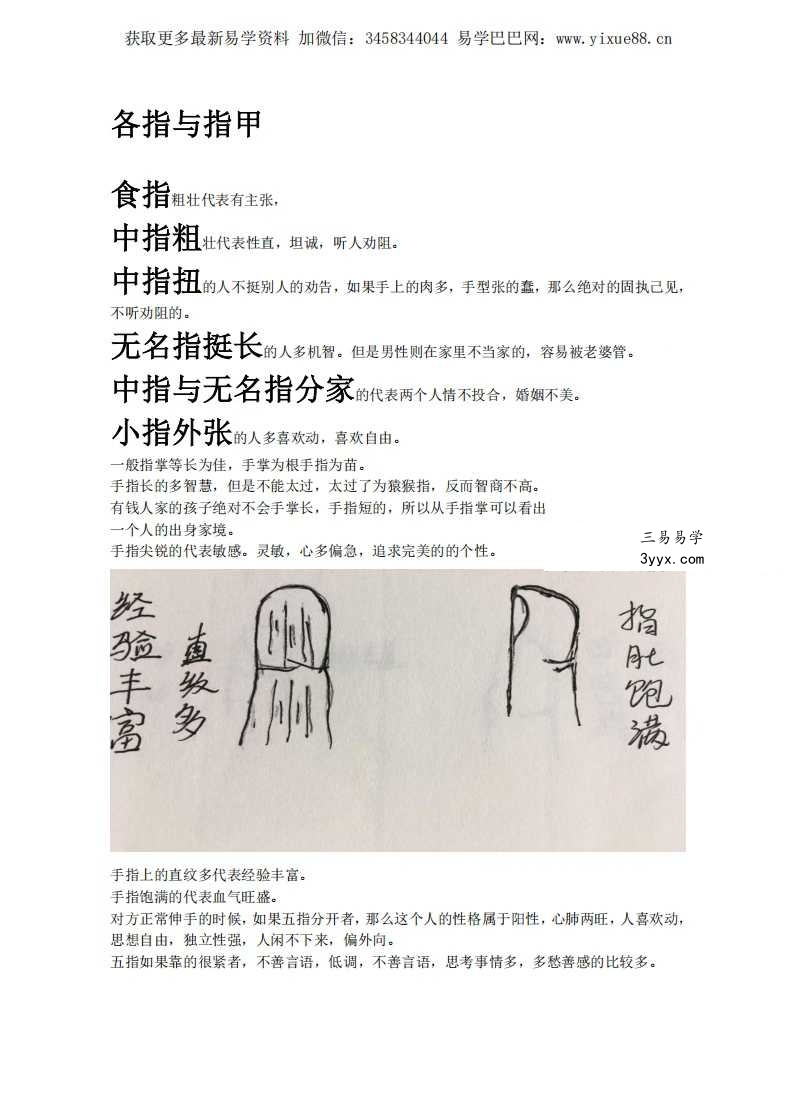 获取更多最新易学资料 加微信：3458344044 易学巴巴网：www.yixue88.cn
各指与指甲
食指粗壮代表有主张，
中指粗壮代表性直，坦诚，听人劝阻。
中指扭的人不挺别人的劝告，如果手上的肉多，手型张的蠢，那么绝对的固执己见，
不听劝阻的。
无名指挺长的人多机智。但是男性则在家里不当家的，容易被老婆管。
中指与无名指分家的代表两个人情不投合，婚姻不美。
小指外张的人多喜欢动，喜欢自由。
一般指掌等长为佳，手掌为根手指为苗。
手指长的多智慧，但是不能太过，太过了为猿猴指，反而智商不高。
有钱人家的孩子绝对不会手掌长，手指短的，所以从手指掌可以看出
一个人的出身家境。
手指尖锐的代表敏感。灵敏，心多偏急，追求完美的的个性。
三易易学
3yyx.com
经验丰富
直纹多
指肚饱满
手指上的直纹多代表经验丰富。
手指饱满的代表血气旺盛。
对方正常伸手的时候，如果五指分开者，那么这个人的性格属于阳性，心肺两旺，人喜欢动，
思想自由，独立性强，人闲不下来，偏外向。
五指如果靠的很紧者，不善言语，低调，不善言语，思考事情多，多愁善感的比较多。